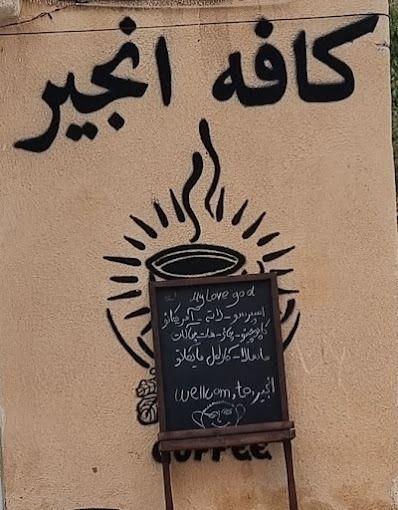 کافه انجیر
My Love god
اسپرسو - لاته - آمریکانو
کاپوچینو - چای - هات چاکلت
ماسالا - کارامل ماکیاتو
wellcom,to, انجیر
COFFEE